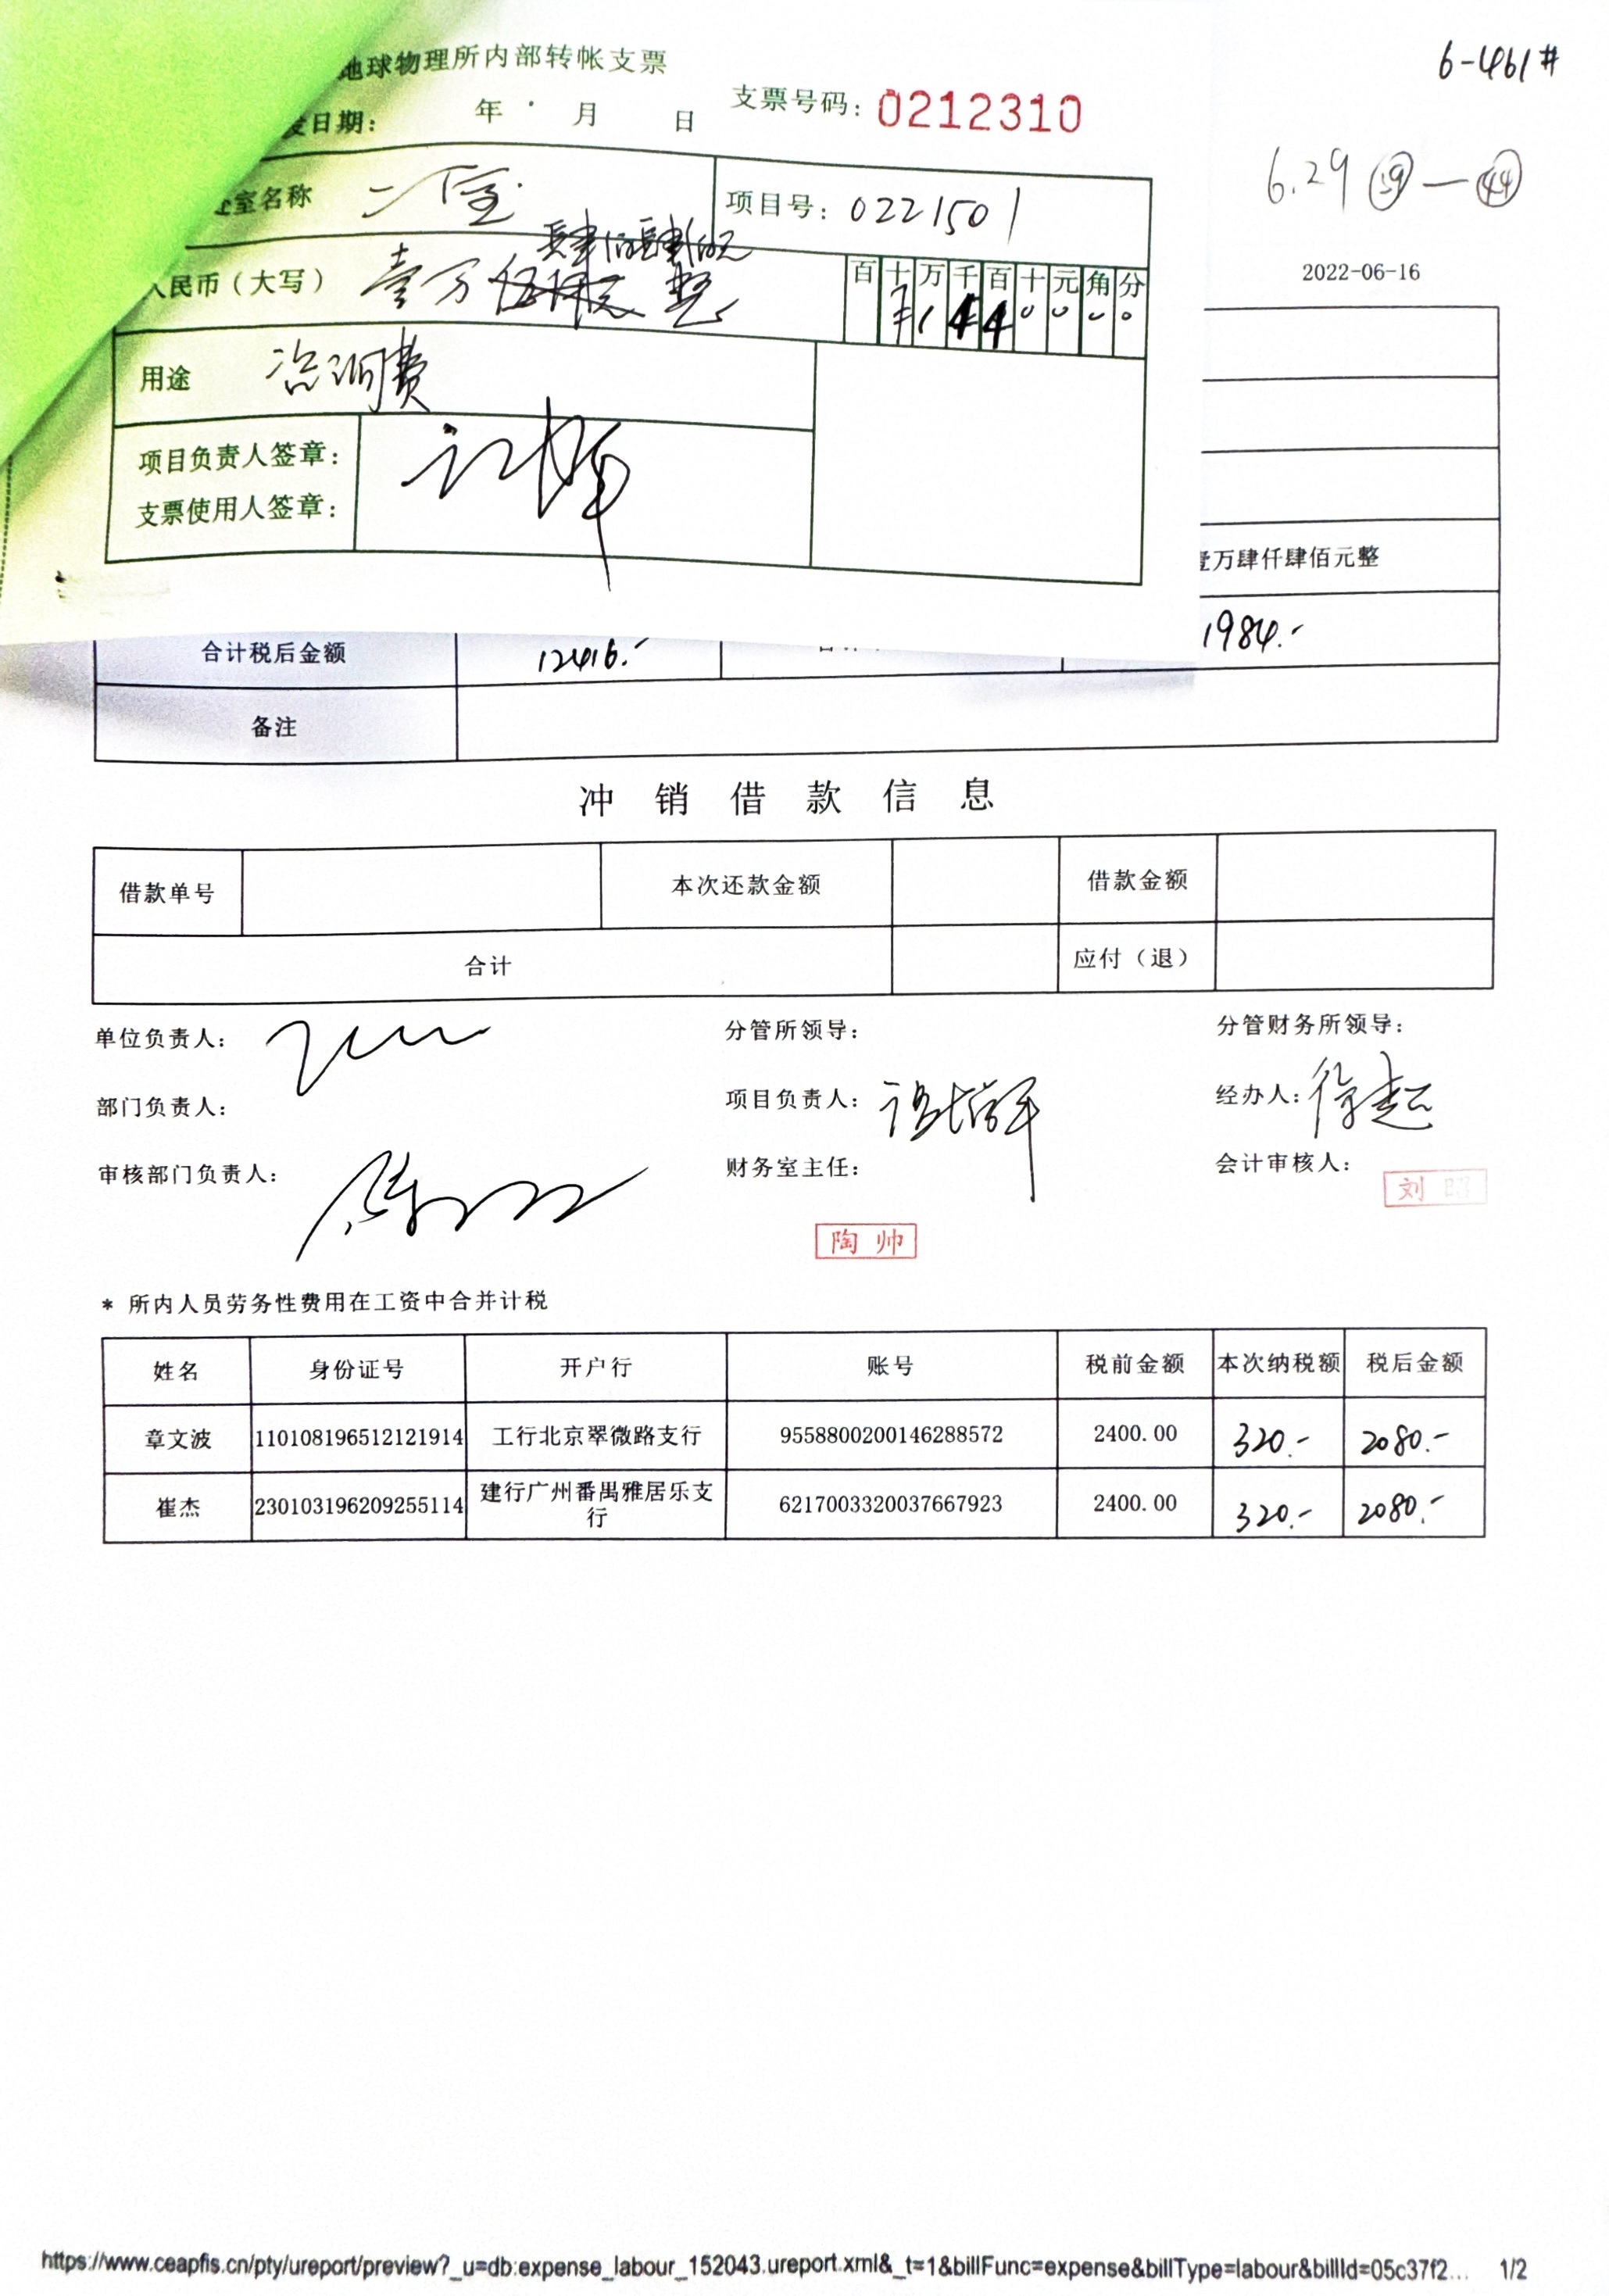 地球物理所内部转帐支票
6-461#
发日期： 年 月 日 支票号码：0212310
6.29 59 — 44
室名称 二室 项目号：0221501
2022-06-16
人民币（大写） 壹万 肆仟肆佰元 整
百 十 万 千 百 十 元 角 分
¥ 1 4 4 0 0 0 0
用途 咨询费
项目负责人签章：
支票使用人签章：
壹万肆仟肆佰元整
合计税后金额 12416.- 1984.-
备注
冲 销 借 款 信 息
借款单号 本次还款金额 借款金额
合计 应付（退）
单位负责人： 分管所领导： 分管财务所领导：
部门负责人： 项目负责人： 经办人：徐超
审核部门负责人： 财务室主任： 会计审核人：
刘 昭
陶 帅
* 所内人员劳务性费用在工资中合并计税
姓名 身份证号 开户行 账号 税前金额 本次纳税额 税后金额
章文波 110108196512121914 工行北京翠微路支行 9558800200146288572 2400.00 320.- 2080.-
崔杰 230103196209255114 建行广州番禺雅居乐支行 6217003320037667923 2400.00 320.- 2080.-
https://www.ceapfis.cn/pty/ureport/preview?_u=db:expense_labour_152043.ureport.xml&_t=1&billFunc=expense&billType=labour&billId=05c37f2... 1/2